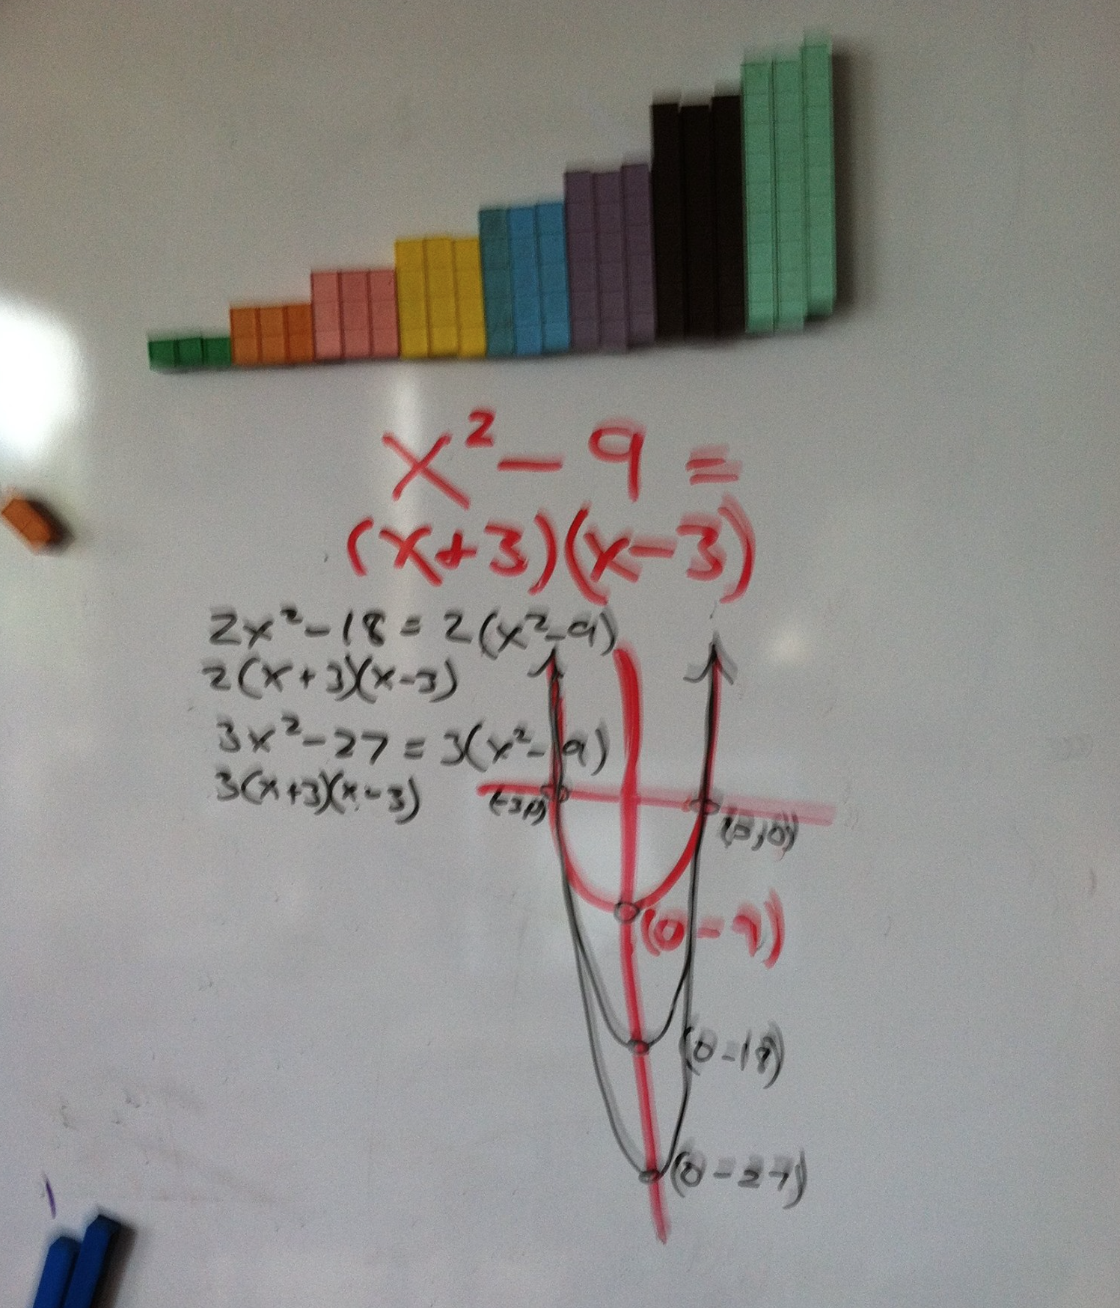 x² - 9 =
(x+3)(x-3)
2x² - 18 = 2(x² - 9)
2(x+3)(x-3)
3x² - 27 = 3(x² - 9)
3(x+3)(x-3)
(-3,0)
(3,0)
(0 - 9)
(0 - 18)
(0 - 27)